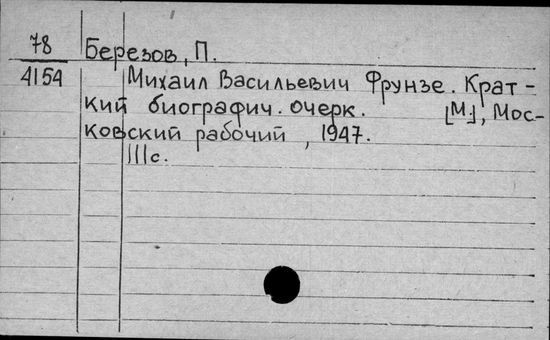 78
4154
Березов, П.
Михаил Васильевич Фрунзе. Крат-
кий биографич. очерк. [М.], Мос-
ковский рабочий, 1947.
111с.